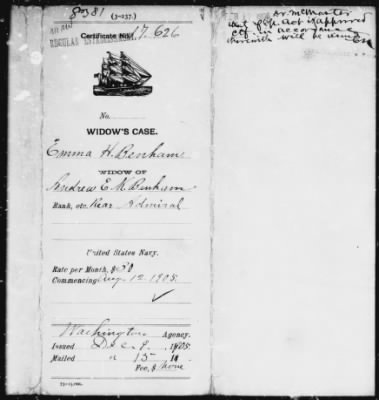 8381
(3-237.)
Certificate No. 17,626
No.
WIDOW'S CASE.
Emma H. Benham
WIDOW OF
Andrew E. K. Benham
Rank, etc. Rear Admiral
United States Navy.
Rate per Month, $30
Commencing Aug. 12 1905.
Washington Agency.
Issued Dec 9, 1905.
Mailed " 15
Fee, $ None
Act is approved
in accordance
will be